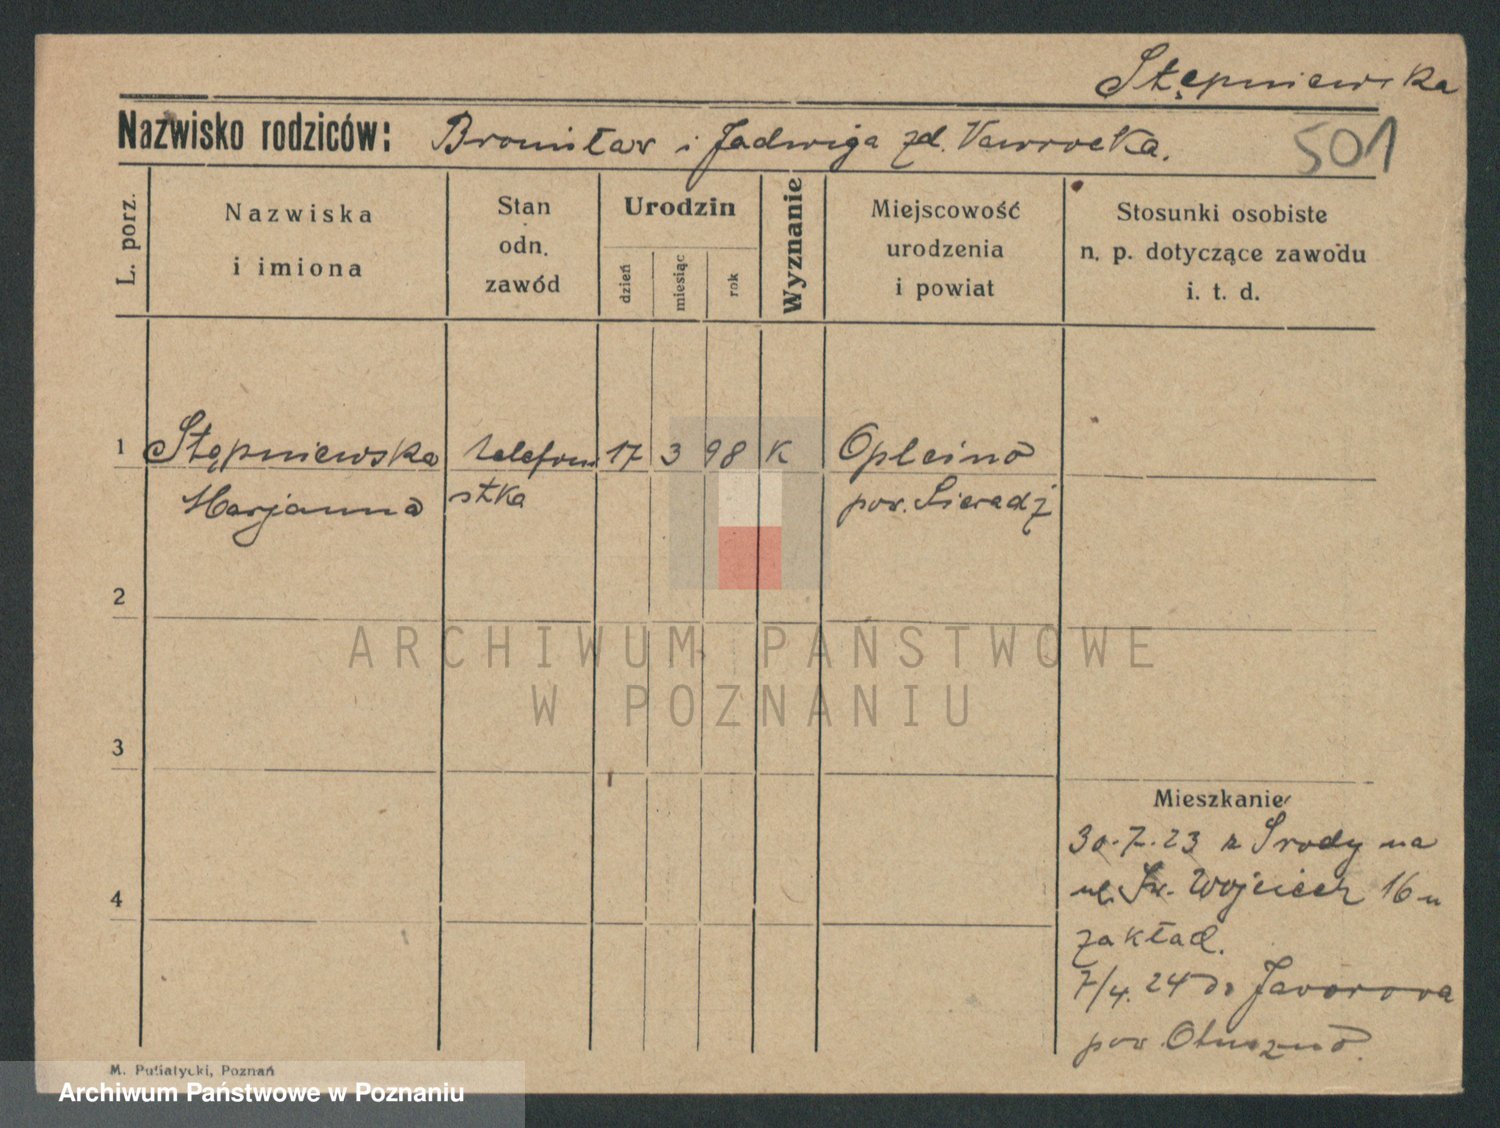 Stępniewska
Nazwisko rodziców: Bronisław i Jadwiga zd. Nawrocka.
501
L. porz.
Nazwiska
i imiona
Stan
odn.
zawód
Urodzin
dzień
miesiąc
rok
Wyznanie
Miejscowość
urodzenia
i powiat
Stosunki osobiste
n. p. dotyczące zawodu
i. t. d.
1 Stępniewska telefoni 17 3 98 K Opleino
Marjanna stka pow. Sieradz
2
3
4
Mieszkanie
30.7.23 z Środy na
ul. Św. Wojciech 16 u
zakład.
7/4. 24 do Javorova
pow.
M. Putiatycki, Poznań
ARCHIWUM PAŃSTWOWE
W POZNANIU
Archiwum Państwowe w Poznaniu